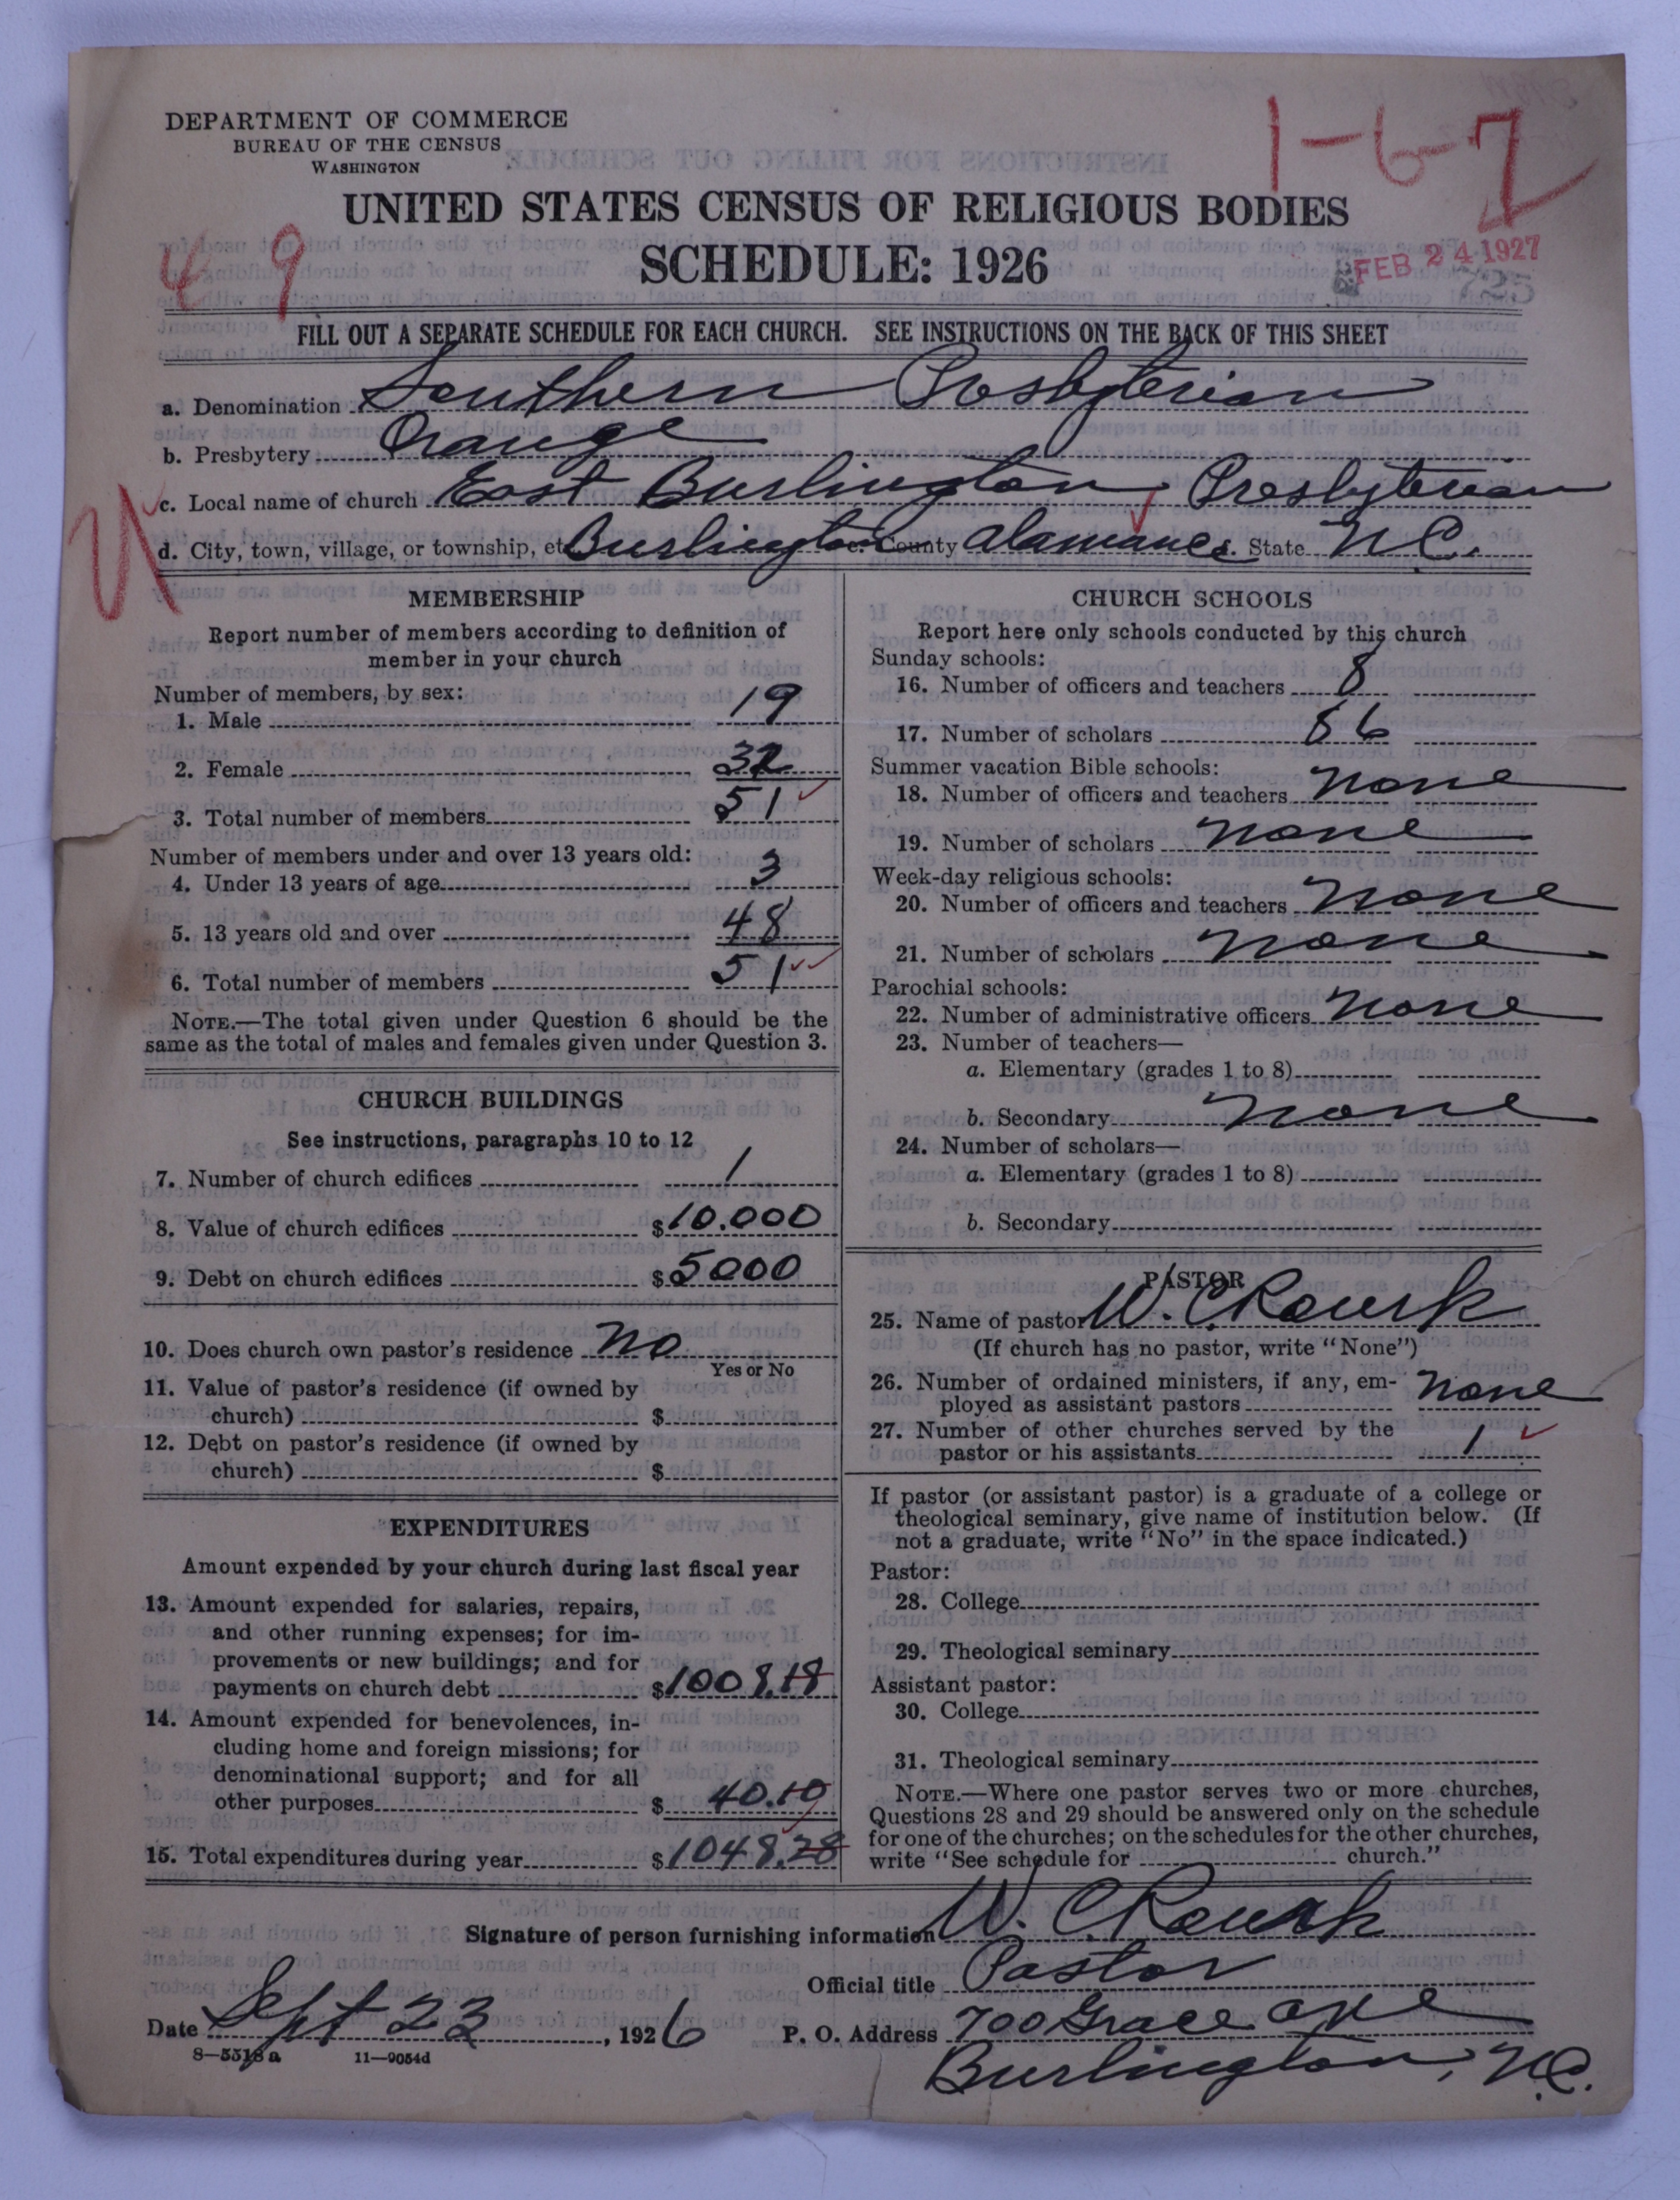 DEPARTMENT OF COMMERCE
BUREAU OF THE CENSUS
WASHINGTON
1-6-2
UNITED STATES CENSUS OF RELIGIOUS BODIES
SCHEDULE: 1926
49
FEB 24 1927
725
FILL OUT A SEPARATE SCHEDULE FOR EACH CHURCH. SEE INSTRUCTIONS ON THE BACK OF THIS SHEET
a. Denomination Southern Presbyterian
b. Presbytery Orange
c. Local name of church East Burlington Presbyterian
d. City, town, village, or township, etc Burlington e. County Alamance f. State N.C.
MEMBERSHIP
Report number of members according to definition of
member in your church
Number of members, by sex:
1. Male 19
2. Female 32
3. Total number of members 51
Number of members under and over 13 years old:
4. Under 13 years of age 3
5. 13 years old and over 48
6. Total number of members 51
NOTE.—The total given under Question 6 should be the
same as the total of males and females given under Question 3.
CHURCH BUILDINGS
See instructions, paragraphs 10 to 12
7. Number of church edifices 1
8. Value of church edifices $10.000
9. Debt on church edifices $5000
10. Does church own pastor's residence No
Yes or No
11. Value of pastor's residence (if owned by
church) $
12. Debt on pastor's residence (if owned by
church) $
EXPENDITURES
Amount expended by your church during last fiscal year
13. Amount expended for salaries, repairs,
and other running expenses; for im-
provements or new buildings; and for
payments on church debt $1008.18
14. Amount expended for benevolences, in-
cluding home and foreign missions; for
denominational support; and for all
other purposes $ 40.10
15. Total expenditures during year $1048.28
CHURCH SCHOOLS
Report here only schools conducted by this church
Sunday schools:
16. Number of officers and teachers 8
17. Number of scholars 86
Summer vacation Bible schools:
18. Number of officers and teachers None
19. Number of scholars None
Week-day religious schools:
20. Number of officers and teachers None
21. Number of scholars None
Parochial schools:
22. Number of administrative officers None
23. Number of teachers—
a. Elementary (grades 1 to 8)
b. Secondary None
24. Number of scholars—
a. Elementary (grades 1 to 8)
b. Secondary
PASTOR
25. Name of pastor W. C. Rourk
(If church has no pastor, write "None")
26. Number of ordained ministers, if any, em-
ployed as assistant pastors None
27. Number of other churches served by the
pastor or his assistants 1
If pastor (or assistant pastor) is a graduate of a college or
theological seminary, give name of institution below. (If
not a graduate, write "No" in the space indicated.)
Pastor:
28. College
29. Theological seminary
Assistant pastor:
30. College
31. Theological seminary
NOTE.—Where one pastor serves two or more churches,
Questions 28 and 29 should be answered only on the schedule
for one of the churches; on the schedules for the other churches,
write "See schedule for church."
Signature of person furnishing information W. C. Rourk
Official title Pastor
Date Sept 23, 1926
P. O. Address 700 Grace Ave
Burlington, N.C.
8—5518 a 11—9054d